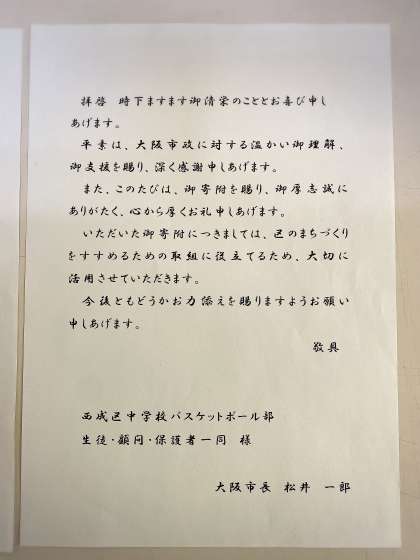 拝啓　時下ますます御清栄のこととお喜び申し
あげます。
平素は、大阪市政に対する温かい御理解、
御支援を賜り、深く感謝申しあげます。
また、このたびは、御寄附を賜り、御厚志誠に
ありがたく、心から厚くお礼申しあげます。
いただいた御寄附につきましては、区のまちづくり
をすすめるための取組に役立てるため、大切に
活用させていただきます。
今後ともどうかお力添えを賜りますようお願い
申しあげます。
敬具
西成区中学校バスケットボール部
生徒・顧問・保護者一同　様
大阪市長　松井　一郎